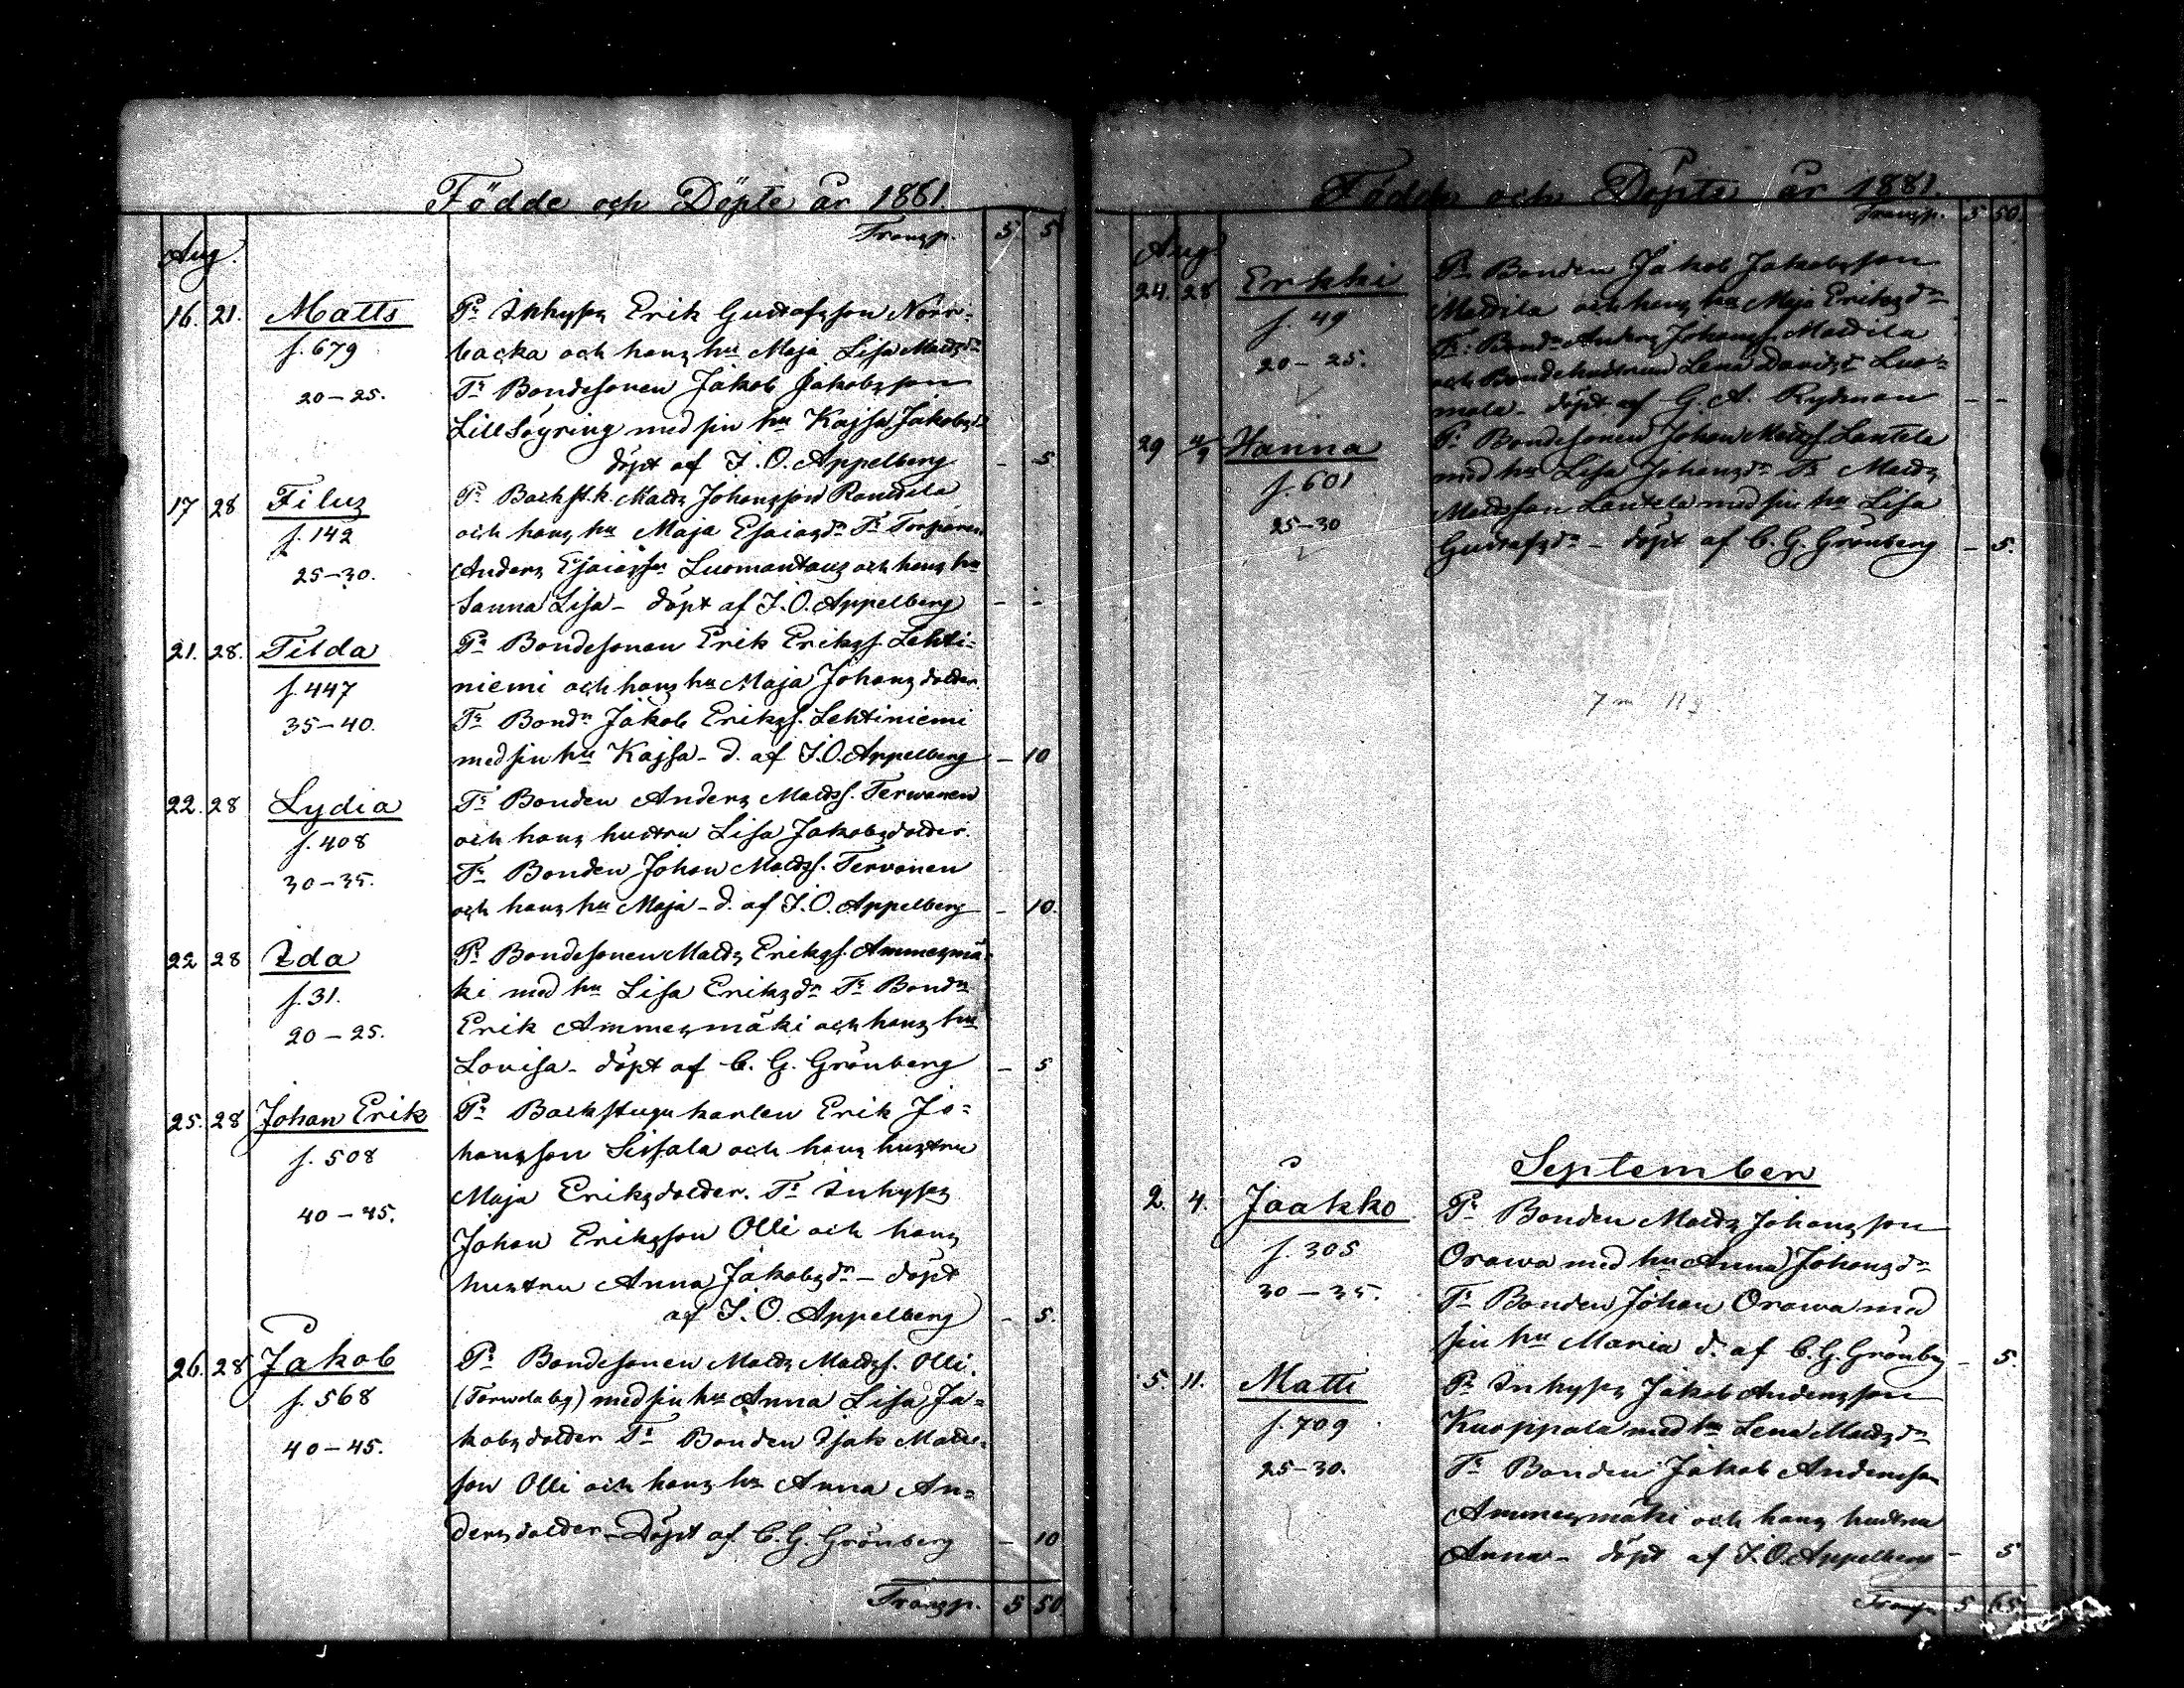 Födde och Döpte år 1881.
Transp. 5 5
Aug.
16. 21. Matts Pr Inhyses Erik Gustafsson Norr-
f. 679 backa och hans hu Maja Lisa Mattsdr
20-25. Fr Bondesonen Jakob Jakobsson
Lill Söyring med sin hu Kajsa Jakobsdr
döpt af J. O. Appelberg - 5
17 28 Filus Pr Backst.k. Matts Johansson Rantala
f. 142 och hans hu Maja Esaiasdr Fr Torparen
25-30. Anders Esaiasson Luomantaus och hans hu
Sanna Lisa - döpt af J. O. Appelberg - -
21. 28. Tilda Pr Bondesonen Erik Erikss. Lehti-
f. 447 niemi och hans hu Maja Johansdotter.
35-40. Fr Bondn Jakob Erikss. Lehtiniemi
med sin hu Kajsa - d. af J. O. Appelberg - 10
22. 28 Lydia Pr Bonden Anders Mattss. Terwonen
f. 408 och hans hustru Lisa Jakobsdotter.
30-35. Fr Bonden Johan Mattss. Tervonen
och hans hu Maja - d. af J. O. Appelberg - 10.
22 28 Ida Pr Bondesonen Matts Erikss. Ammesmä-
f. 31. ki med hu Lisa Eriksdr Fr Bondn
20-25. Erik Ammesmäki och hans hu
Lovisa - döpt af C. G. Grönberg - 5
25. 28 Johan Erik Pr Backstugukarlen Erik Jo-
f. 508 hansson Sissala och hans hustru
Maja Eriksdotter. Fr Inhyses
40-45. Johan Eriksson Olli och hans
hustru Anna Jakobsdr - döpt
af J. O. Appelberg - 5.
26. 28 Jakob Pr Bondesonen Matts Mattss. Olli
f. 568 (Torwela by) med sin hu Anna Lisa Ja-
40-45. kobsdotter Fr Bonden Isak Matts-
son Olli och hans hu Anna An-
dersdotter - Döpt af C. G. Grönberg - 10
Transp. 5 50
Födde och Döpte år 1881.
Transp. 5 50.
Aug
24. 28 Erkki Pr Bonden Jakob Jakobsson
f. 49 Mattila och hans hu Maja Eriksdr
20-25. Fr Bondn Anders Johanss. Mattila
och Bondehustrun Lena Davidsdr Luo-
mala - döpt af G. A. Rydman - -
29 4/9 Hanna Pr Bondesonen Johan Mattss. Lantela
f. 601 med hu Lisa Johansdr Fr Matts
25-30 Mattsson Lantela med sin hu Lisa
Gustafsdr - döpt af C. G. Grönberg - 5.
September
2. 4. Jaakko Pr Bonden Matts Johansson
f. 305 Orawa med hu Anna Johansdr
30-35. Fr Bonden Johan Orawa med
sin hu Maria d. af C. G. Grönbg - 5.
5. 11. Matti Pr Inhyses Jakob Andersson
f. 709 Kuoppala med hu Lena Mattsdr
25-30. Fr Bonden Jakob Andersson
Ammesmäki och hans hustru
Anna - döpt af J. O. Appelberg - 5
Transp. 5 65.